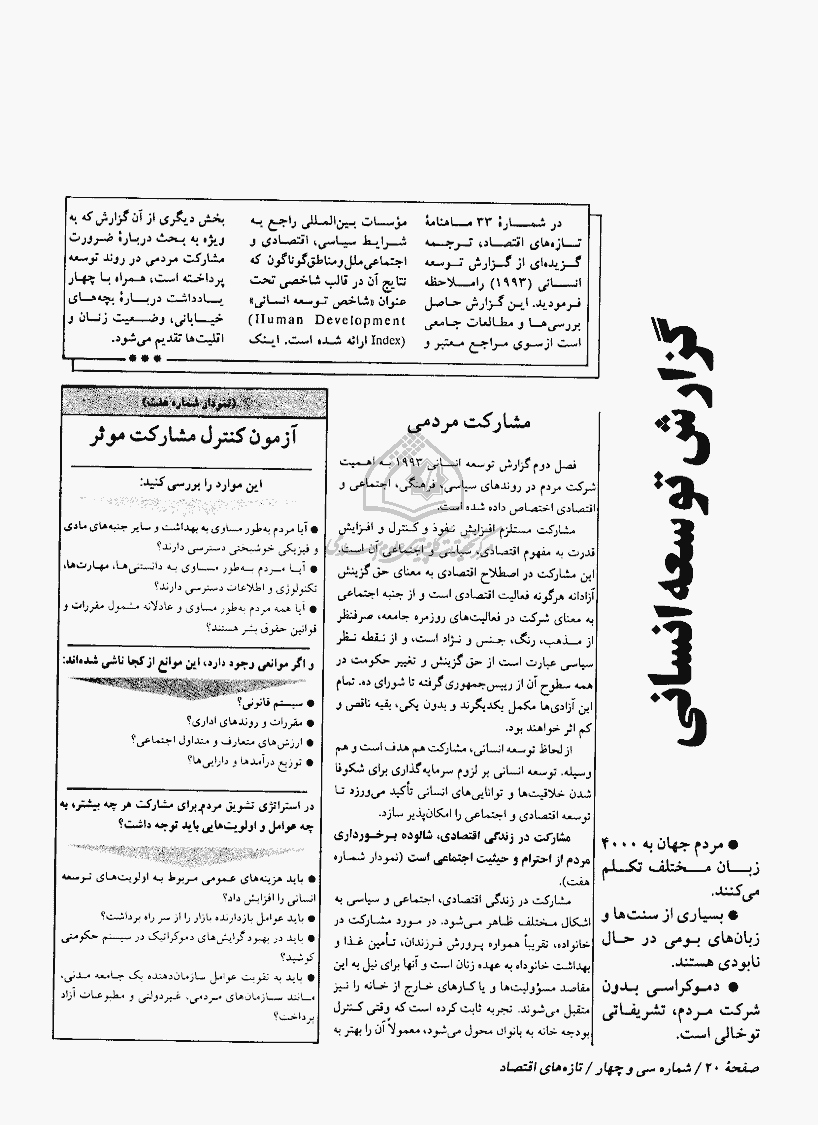 گزارش توسعه انسانی
در شمـــارۀ ۳۳ مـاهنامۀ
تـازه‌های اقتصاد، تـرجـمه
گـزیده‌ای از گـزارش تـوسعه
انسـانی (۱۹۹۳) راملاحظه
فرمودید. ایـن گـزارش حـاصل
بررسی‌ها و مطالعات جـامعی
است ازسوی مـراجع مـعتبر و
مؤسسات بین‌المللی راجع بـه
شـرایـط سیاسی، اقتصادی و
اجتماعی‌ملل‌ومناطق‌گوناگون که
نتایج آن در قـالب شـاخصی تحت
عنوان «شاخص تـوسعه انسانی»
(Human Development
Index) ارائه شده است. ایـنک
بخش دیگری از آن گزارش که به
ویژه به بحث دربارۀ ضـرورت
مشارکت مردمی در روند توسعه
پرداخته است، همراه بـا چـهار
یـادداشت دربـارۀ بـچه‌های
خـیـابـانی، وضـعیت زنـان و
اقلیت‌ها تقدیم می‌شود.
مشارکت مردمی
فصل دوم گزارش توسعه انـسانی ۱۹۹۳ بـه اهـمیت
شرکت مردم در روندهای سیاسی، فرهنگی، اجتماعی و
اقتصادی اختصاص داده شده است.
مشارکت مستلزم افـزایش نـفوذ و کـنترل و افـزایش
قدرت به مفهوم اقتصادی، سیاسی و اجتماعی آن است.
این مشارکت در اصطلاح اقتصادی به معنای حق گزینش
آزادانه هرگونه فعالیت اقتصادی است و از جنبه اجتماعی
به معنای شرکت در فعالیت‌های روزمره جامعه، صرفنظر
از مـذهب، رنگ، جـنس و نـژاد است، و از نـقطه نـظر
سیاسی عبارت است از حق گزینش و تغییر حکومت در
همه سطوح آن از رییس‌جمهوری گرفته تا شورای ده. تمام
این آزادی‌ها مکمل یکدیگرند و بدون یکی، بقیه ناقص و
کم اثر خواهند بود.
از لحاظ توسعه انسانی، مشارکت هم هدف است و هم
وسیله. توسعه انسانی بر لزوم سرمایه‌گذاری برای شکوفا
شدن خلاقیت‌ها و توانایی‌های انسانی تأکید می‌ورزد تـا
توسعه اقتصادی و اجتماعی را امکان‌پذیر سازد.
مشارکت در زندگی اقتصادی، شالوده برخورداری
مردم از احترام و حیثیت اجتماعی است (نمودار شماره
هفت).
مشارکت در زندگی اقتصادی، اجتماعی و سیاسی به
اشکال مـختلف ظـاهر مـی‌شود. در مـورد مشـارکت در
خانواده، تقریباً همواره پـرورش فـرزندان، تـأمین غـذا و
بهداشت خانواده به عهده زنان است و آنها برای نیل به این
مقاصد مسؤولیت‌ها و یا کارهای خارج از خـانه را نیز
متقبل می‌شوند. تجربه ثابت کرده است که وقتی کنترل
بودجه خانه به بانوان محول می‌شود، معمولاً آن را بهتر به
(نمودار شماره هفت)
آزمون کنترل مشارکت موثر
این موارد را بررسی کنید:
● آیا مردم به‌طور مساوی به بهداشت و سایر جنبه‌های مادی
و فیزیکی خوشبختی دسترسی دارند؟
● آیـا مـردم بـه‌طور مسـاوی بـه دانستنی‌ها، مهارت‌ها،
تکنولوژی و اطلاعات دسترسی دارند؟
● آیا همه مردم به‌طور مساوی و عادلانه مشمول مقررات و
قوانین حقوق بشر هستند؟
و اگر موانعی وجود دارد، این موانع از کجا ناشی شده‌اند:
● سیستم قانونی؟
● مقررات و روندهای اداری؟
● ارزش‌های متعارف و متداول اجتماعی؟
● توزیع درآمدها و دارایی‌ها؟
در استراتژی تشویق مردم‌برای مشارکت هر چه بیشتر، به
چه عوامل و اولویت‌هایی باید توجه داشت؟
● باید هزینه‌های عمومی مربوط بـه اولویت‌های توسعه
انسانی را افزایش داد؟
● باید عوامل بازدارنده بازار را از سر راه برداشت؟
● باید در بهبود گرایش‌های دموکراتیک در سیستم حکومتی
کوشید؟
● باید به تقویت عوامل سازمان‌دهنده یک جـامعه مـدنی،
مـانند سـازمان‌های مردمی، غیردولتی و مطبوعات آزاد
پرداخت؟
● مردم جهان به ۴۰۰۰
زبـــان مـــختلف تکـــلم
می‌کنند.
● بسیاری از سنت‌ها و
زبان‌های بومی در حـال
نابودی هستند.
● دمـوکراسـی بـدون
شرکت مردم، تشریفـاتی
توخالی است.
صفحۀ ۲۰ / شماره سی و چهار / تازه‌های اقتصاد